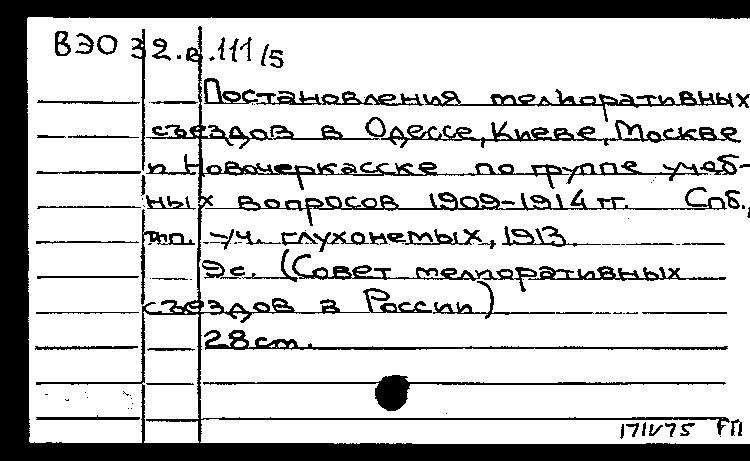 ВЭО 32.в.111/5
Постановления мелиоративных
съездов в Одессе, Киеве, Москве
и Новочеркасске по группе учеб-
ных вопросов 1909-1914 гг. Спб.,
тип. уч. глухонемых, 1913.
9с. (Совет мелиоративных
съездов в России)
28см.
171V75 РП